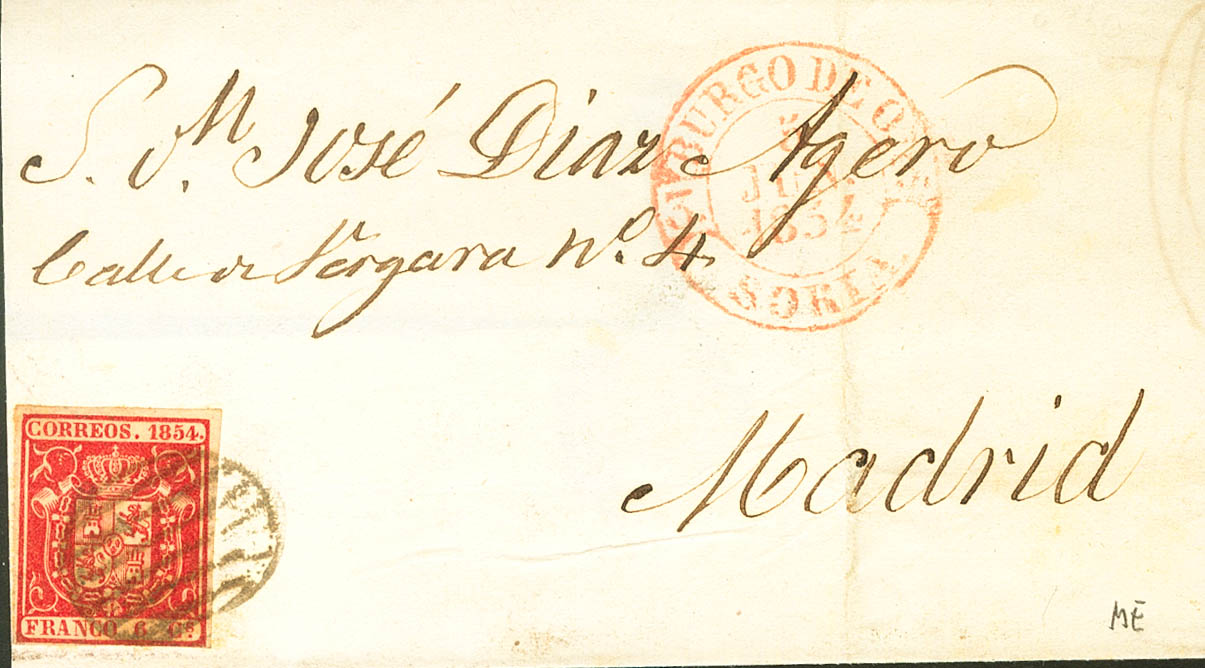 S. D.ⁿ José Diaz Agero
Calle de Vergara Nº. 4.
BURGO DE O
5
JUN.
1854
SORIA.
Madrid
CORREOS. 1854.
FRANCO 6 Cˢ
ME